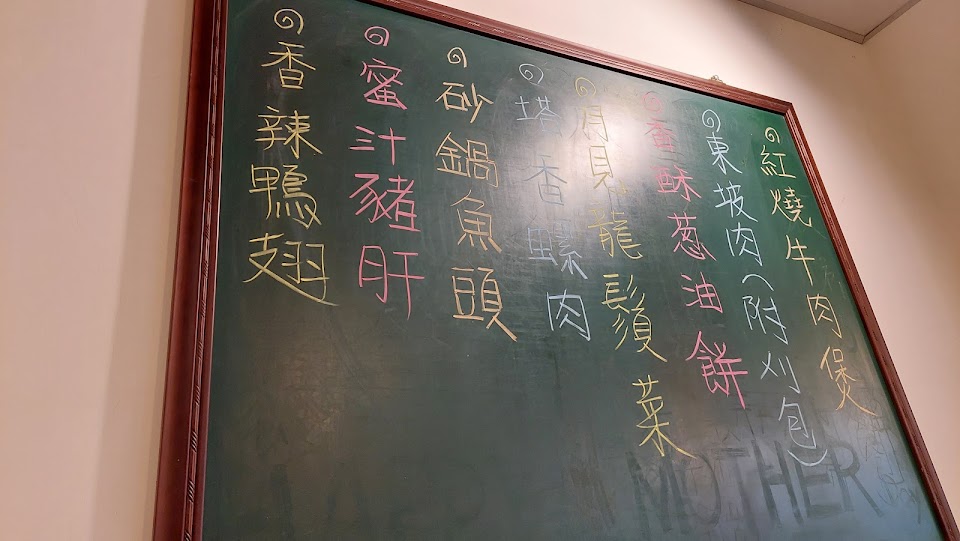 紅燒牛肉煲
東坡肉(附刈包)
香酥葱油餅
月見龍鬚菜
塔香螺肉
砂鍋魚頭
蜜汁豬肝
香辣鴨翅
MOTHER